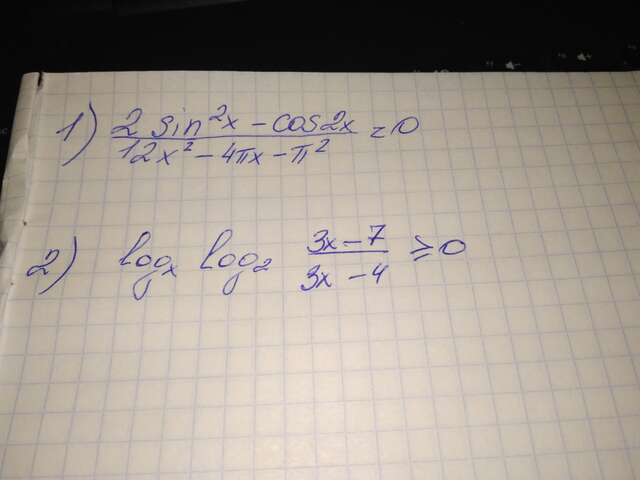 1) 2 sin²x - cos2x = 0
12x² - 4πx - π²
2) logₓ log₂ 3x - 7 ≥ 0
3x - 4